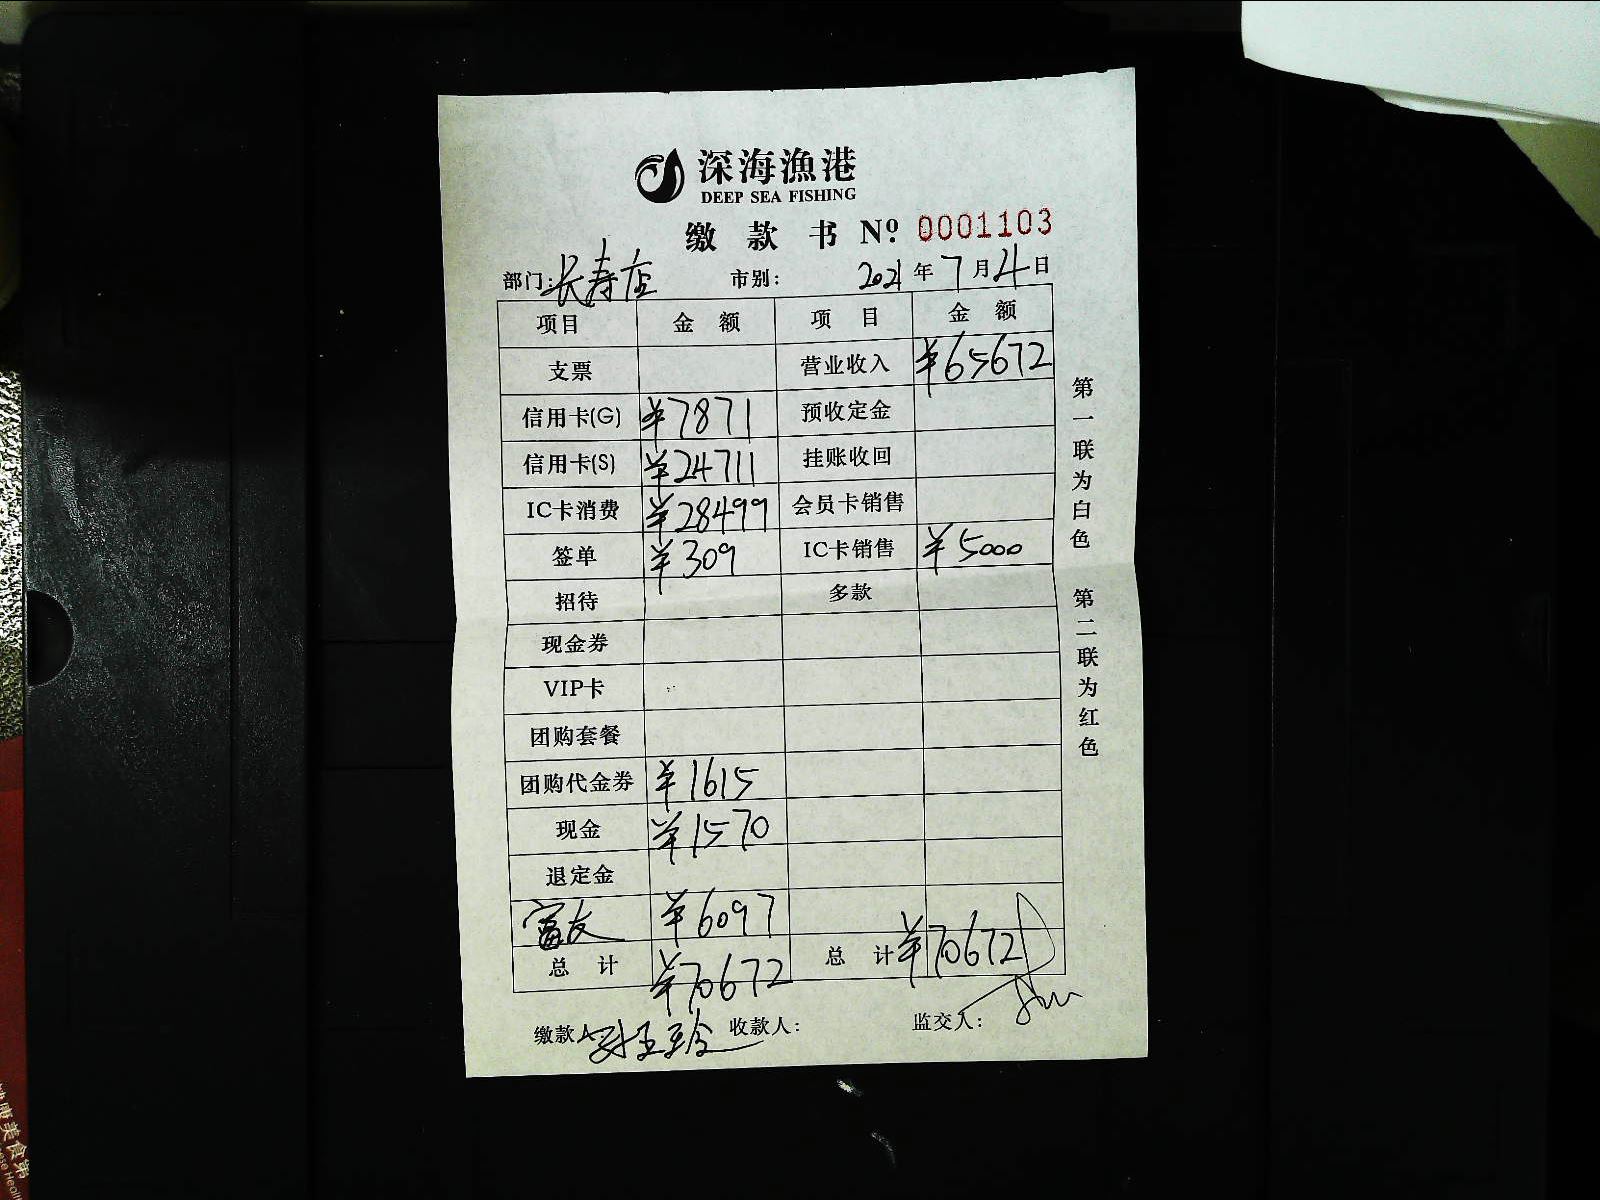 深海漁港
DEEP SEA FISHING
缴款书 Nº: 0001103
部门: 长寿店 市别: 2021年7月4日
项目 金额 项目 金额
支票 营业收入 ¥65672
信用卡(G) ¥7871 预收定金
信用卡(S) ¥24711 挂账收回
IC卡消费 ¥28499 会员卡销售
签单 ¥309 IC卡销售 ¥5000
招待 多款
现金券
VIP卡
团购套餐
团购代金券 ¥1615
现金 ¥1570
退定金
富友 ¥6097
总计 ¥70672 总计 ¥70672
缴款人 收款人: 监交人:
第一联为白色
第二联为红色
健康美食第